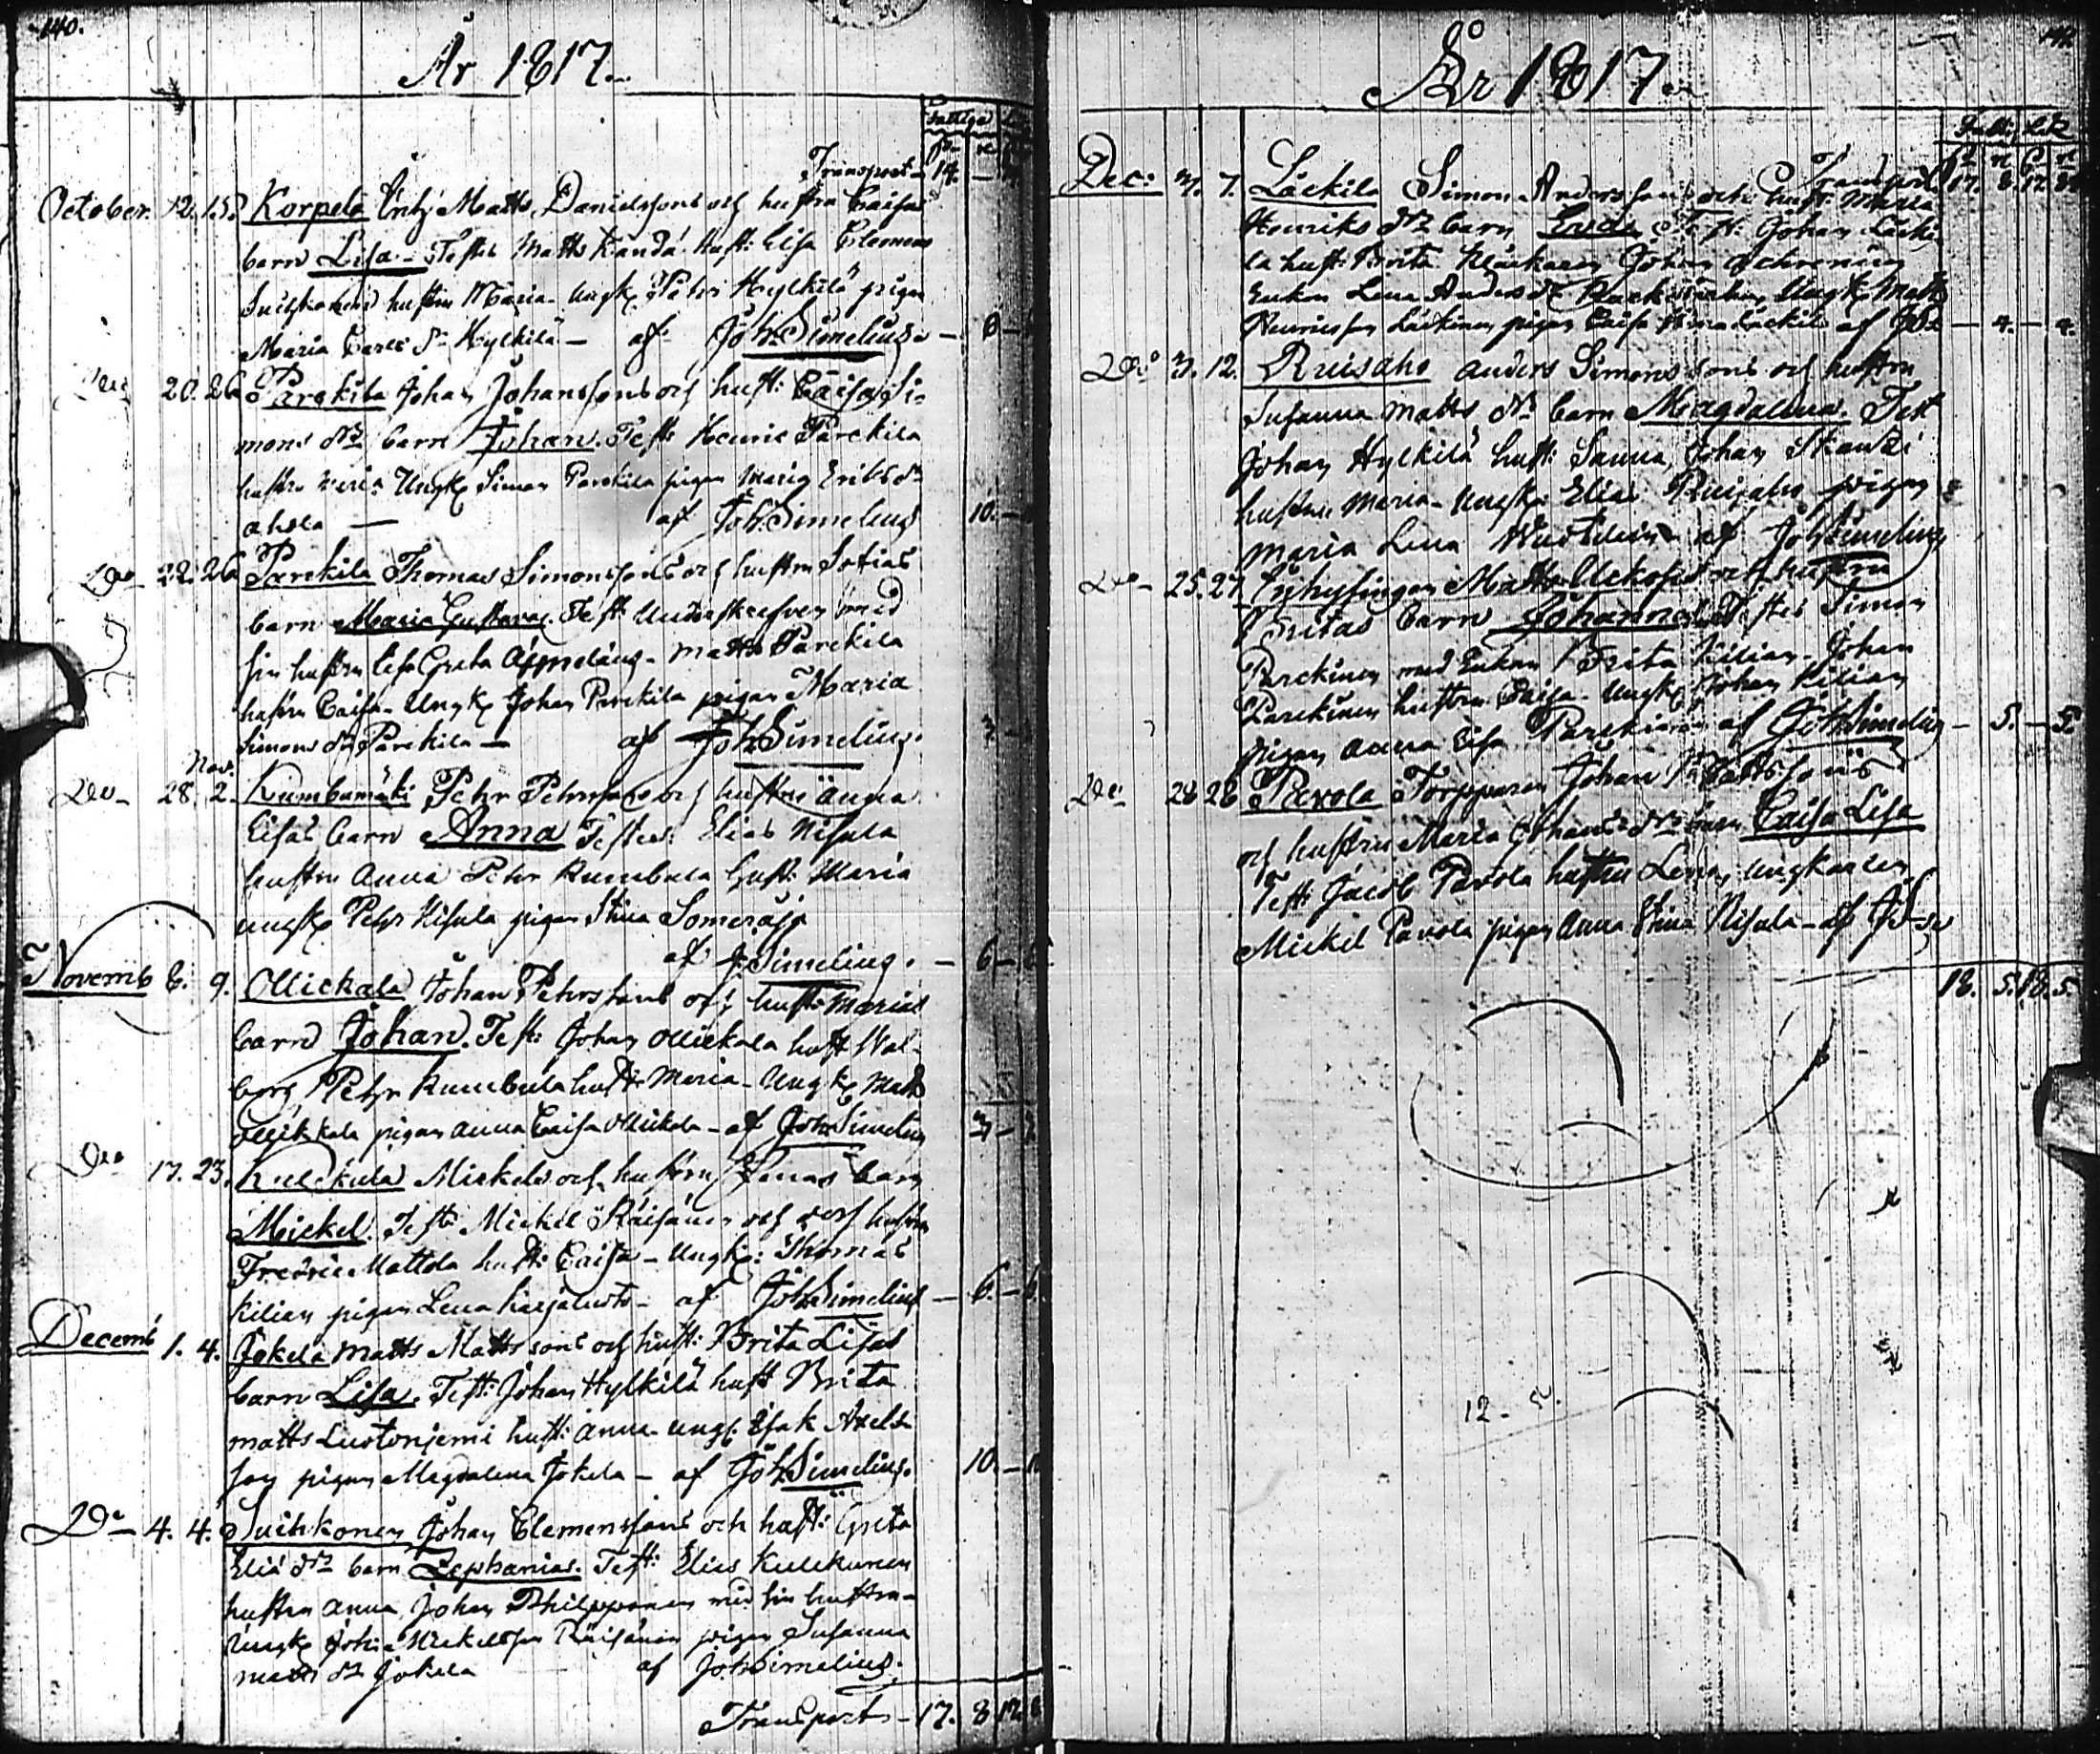 140.
År 1817.
Fattiga
Transport - 14. -
October. 12. 15. Korpela Matts Danielssons och hustru Caisas
barn Lisa - Testes Matts Kanda hust: Lisa Clemens
Suihkonens hustru Maria - Ungk Petr Hylkilä pigan
Maria Carls dr Hylkilä - af Joh: Simelius - 6 -
Do 20. 26 Parckila Johan Johanssons och hust: Caisa Si-
mons dr barn Johan. Test: Henric Parckila
hustru Ungk Simon Parckila pigan Maria Eriks dr
ahola - af Joh: Simelius 10. -
Do - 22. 26 Parckila Thomas Simonssons och hustru Sofias
barn Maria Gustava. Test: Underskrefven med
sin hustru Lisa Greta Asmeläng - Matts Parckila
hustru Caisa - Ungk Johan Parckila pigan Maria
Simons dr Parckila - af Joh: Simelius. 3 -
Nov.
Do - 28. 2. Kumbumäki Petr Petrssons och hustru Anna
Lisas barn Anna Testes: Elias Nisula
hustru Anna Petr Kumbula hust: Maria
ungk Petr Nisula pigan Stina Someroja
af J Simelius. - 6 -
Novemb 8. 9. Ollickala Johan Petrssons och hust: Marias
barn Johan. Test: Johan Ollickala hust Wal-
borg Petr Kumbula hust: Maria - Ungk Matts
Ollikkala pigan Anna Caisa Ollikala - af Joh: Simelius 3 -
Do 17. 23. Kulckula Mickels och hustru Lenas barn
Mickel. Test: Mickel Räisänen och dess hustru
Fredric Mattola hust: Caisa - Ungk: Thomas
Kilian pigan Lena Harjaluoto - af Joh: Simelius - 6. -
Decemb 1. 4. Jokela Matts Matts sons och hust: Brita Lisas
barn Lisa. Test: Johan Hylkilä hust Brita
Matts Luotonjemi hust: Anna - ungk: Isak Axels
son pigan Magdalena Jokela - af Joh: Simelius. 10. -
Do - 4. 4. Suihkonen Johan Clemenssons och hust: Greta
Elia dr barn Zephanias. Test: Elias Kulckunen
hustru Anna, Johan Philipponen med sin hustru -
Ungk Joh: Mickelsson Räisänen pigan Susanna
Matts dr Jokela af Joh: Simelius.
Transport - 17. 8 17. 8
År 1817.
Transport 17. 8. 17. 8.
Dec: 3. 7. Läckila Simon Anderssons och hust: Maria
Henriks dr barn T: Johan Läcki
la hust: Brita Klåckaren Johan
Enkan Lena Anders dr Ungk Matts
Henricsson Läckinen pigan Caisa Stina Läckila af JS - 4. - 4.
Do 3. 12. Ruisaho Anders Simons sons och hustru
Susanna Matts dr barn Magdalena. Test
Johan Hylkilä hust: Sanna, Johan Skandi
hustru Maria - Ungk: Elias Ruisaho pigan
Maria Lena af Joh Simelius
Do - 25. 27. Inhysingen Matts och hustru
Britas barn Johannes. Testes Simon
Parckinen med Enkan Brita Kilian. Johan
Parckinen hustru Caisa - Ungk Johan Kilian
pigan Anna Lisa Parckinen af Joh Simelius - 5. - 5.
Do 28 28 Pavola Torpparen Johan Mattssons
och hustru Maria Johans dr barn Caisa Lisa
Test: Jacob Pavola hustru Lena, Ungkarlen
Mickel Pavola pigan Anna Stina Nisula - af JS
18. 5. 18. 5.
12 -